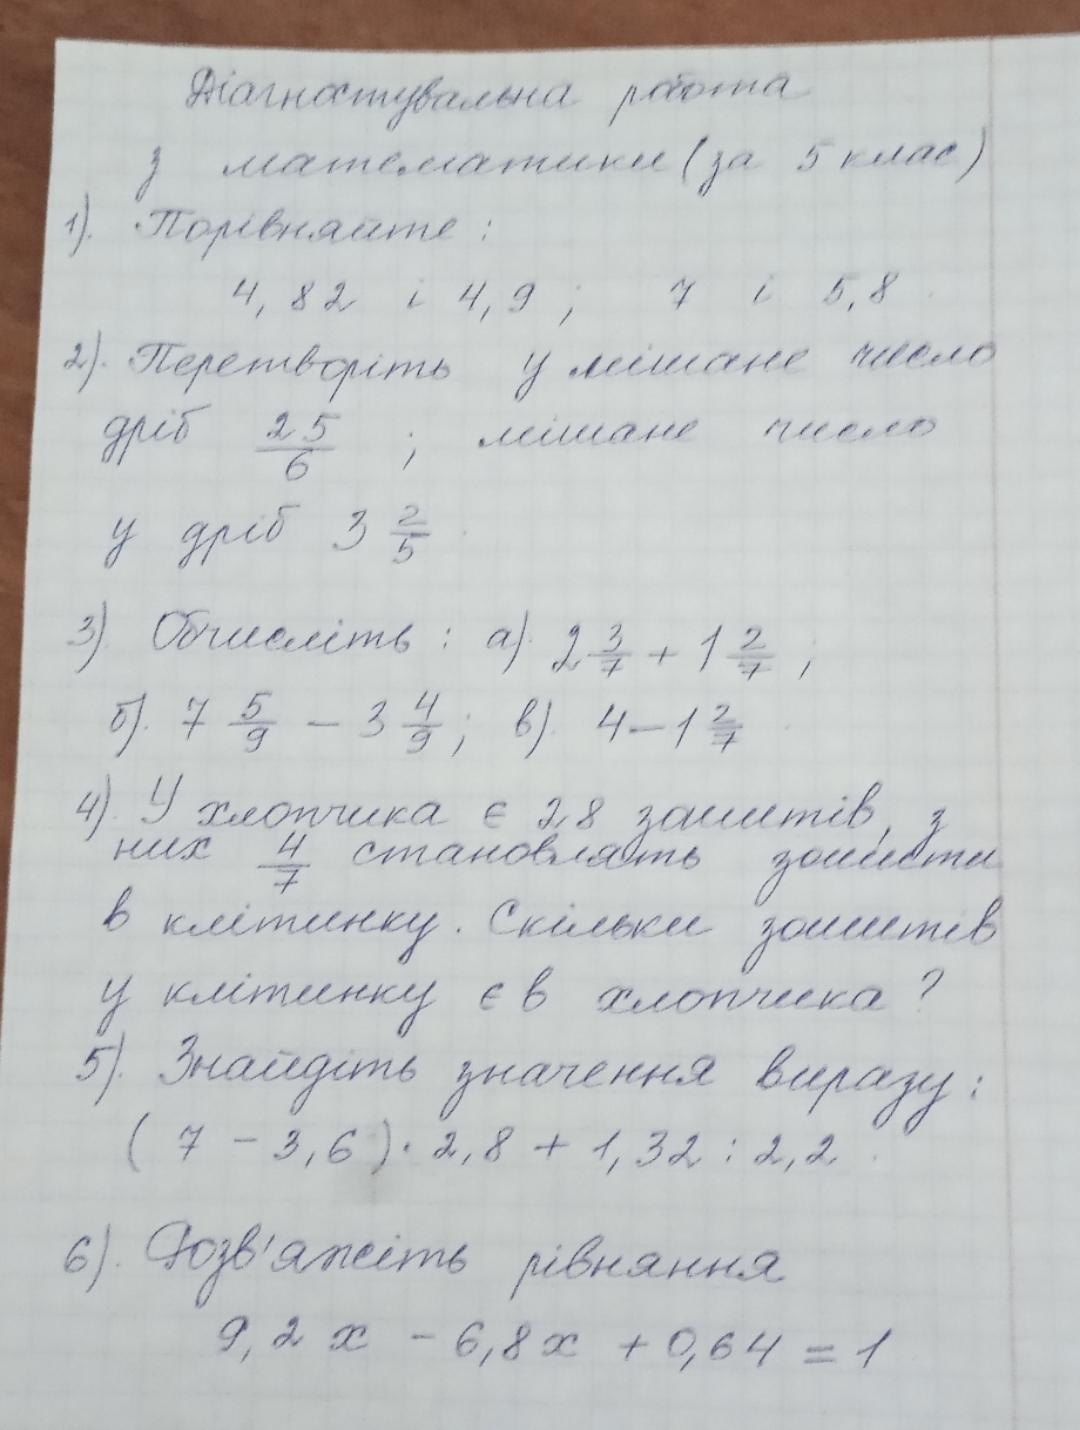 Діагностувальна робота
з математики (за 5 клас)
1). Порівняйте:
4,82 і 4,9; 7 і 5,8.
2). Перетворіть у мішане число
дріб 25/6; мішане число
у дріб 3 2/5.
3). Обчисліть: а). 2 3/7 + 1 2/7;
б). 7 5/9 - 3 4/9; в). 4 - 1 2/7.
4). У хлопчика є 28 зошитів, з
них 4/7 становлять зошити
в клітинку. Скільки зошитів
у клітинку є в хлопчика?
5). Знайдіть значення виразу:
(7 - 3,6) · 2,8 + 1,32 : 2,2.
6). Розв'яжіть рівняння
9,2х - 6,8х + 0,64 = 1